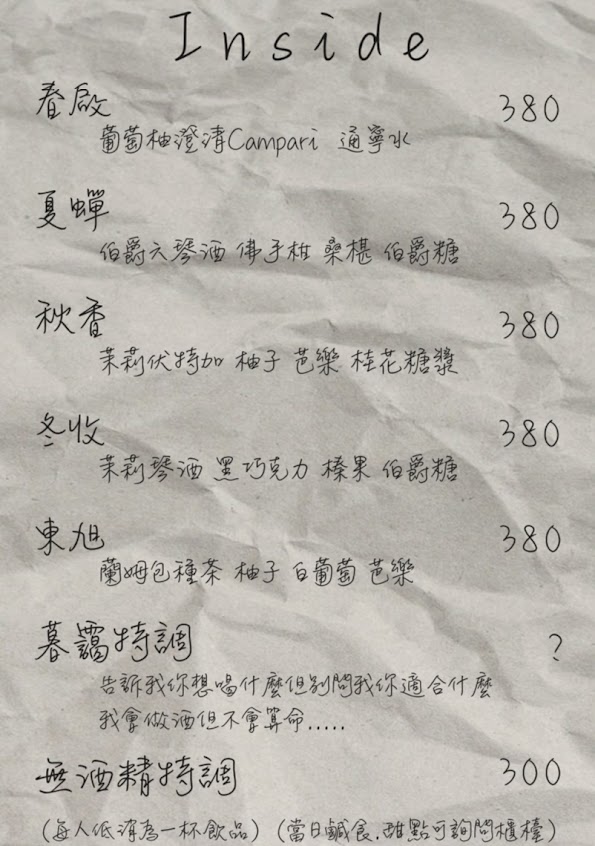 Inside
春啟 380
葡萄柚澄清Campari 通寧水
夏蟬 380
伯爵六琴酒 佛手柑 桑椹 伯爵糖
秋香 380
茉莉伏特加 柚子 芭樂 桂花糖漿
冬收 380
茉莉琴酒 黑巧克力 榛果 伯爵糖
東旭 380
蘭姆包種茶 柚子 白葡萄 芭樂
暮靄特調 ?
告訴我你想喝什麼但別問我你適合什麼
我會做酒但不會算命.....
無酒精特調 300
(每人低消為一杯飲品) (當日鹹食.甜點可詢問櫃檯)